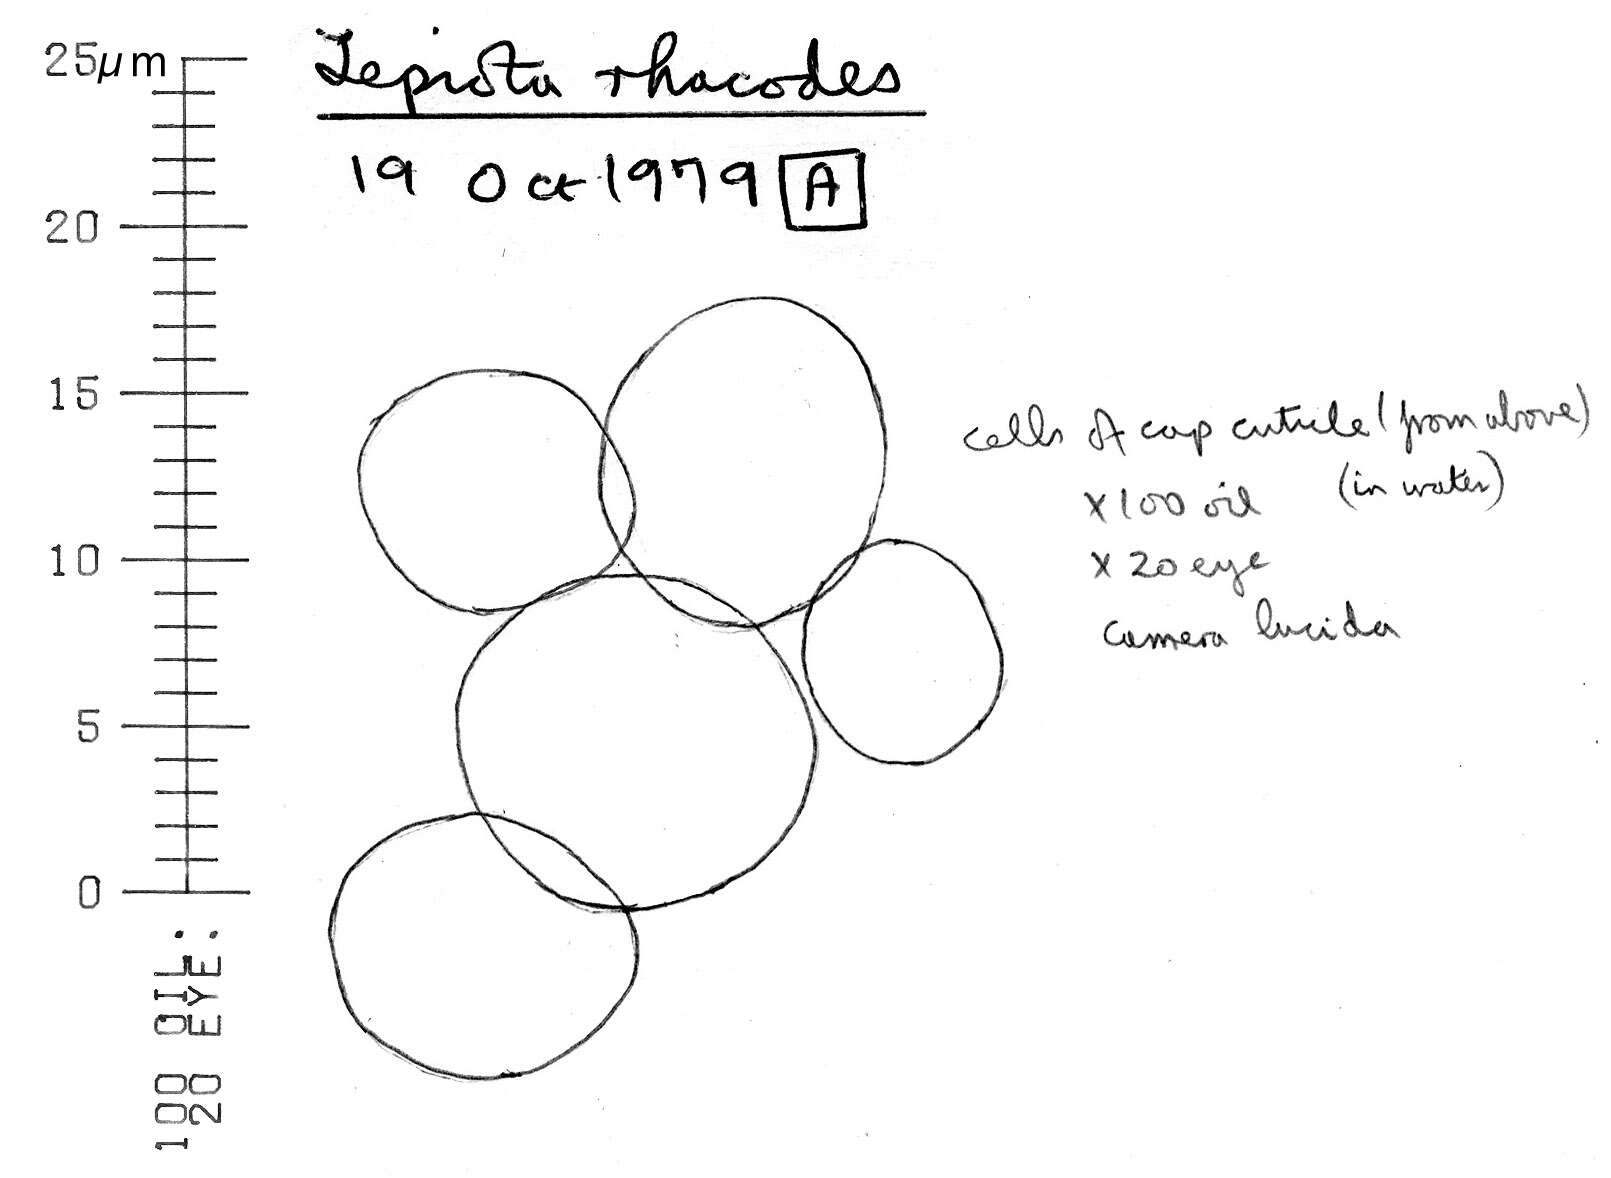 25µm
20
15
10
5
0
100 OIL:
20 EYE:
Lepiota rhacodes
19 Oct 1979 A
cells of cap cuticle (from above)
(in water)
x 100 oil
x 20 eye
camera lucida